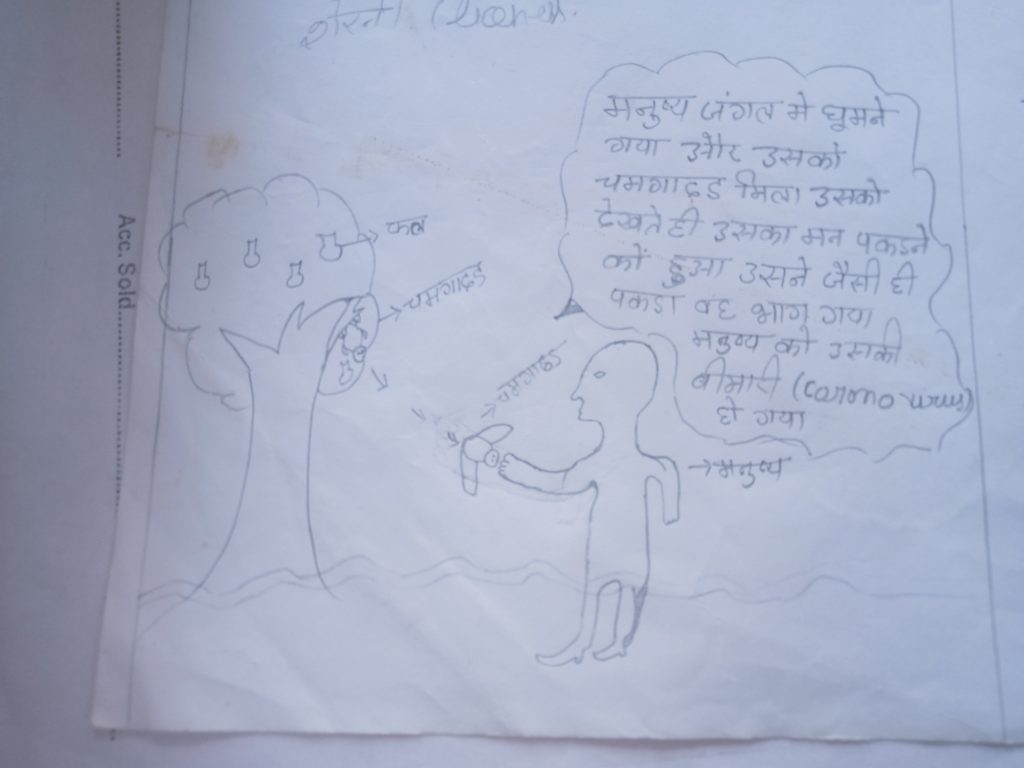 मनुष्य जंगल मे घुमने
गया और उसको
चमगादड मिला उसको
देखते ही उसका मन पकडने
कों हुआ उसने जैसी ही
पकडा वह भाग गया
मनुष्य को उसकी
बीमारी (carono-virus)
हो गया
फल
चमगादड
चमगादड
→मनुष्य
Acc. Sold